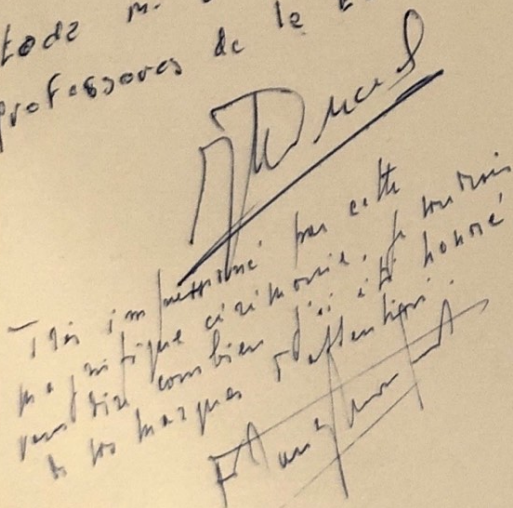 toda
professores de la
Très impressionné par cette
magnifique cérémonie, je voudrais
vous dire combien j'ai été honoré
de vos marques d'attention.